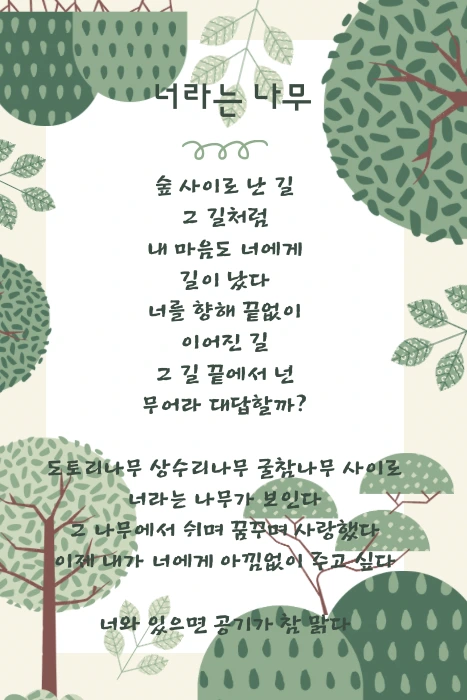 너라는 나무
숲 사이로 난 길
그 길처럼
내 마음도 너에게
길이 났다
너를 향해 끝없이
이어진 길
그 길 끝에서 넌
무어라 대답할까?
도토리나무 상수리나무 굴참나무 사이로
너라는 나무가 보인다
그 나무에서 쉬며 꿈꾸며 사랑했다
이제 내가 너에게 아낌없이 주고 싶다
너와 있으면 공기가 참 맑다